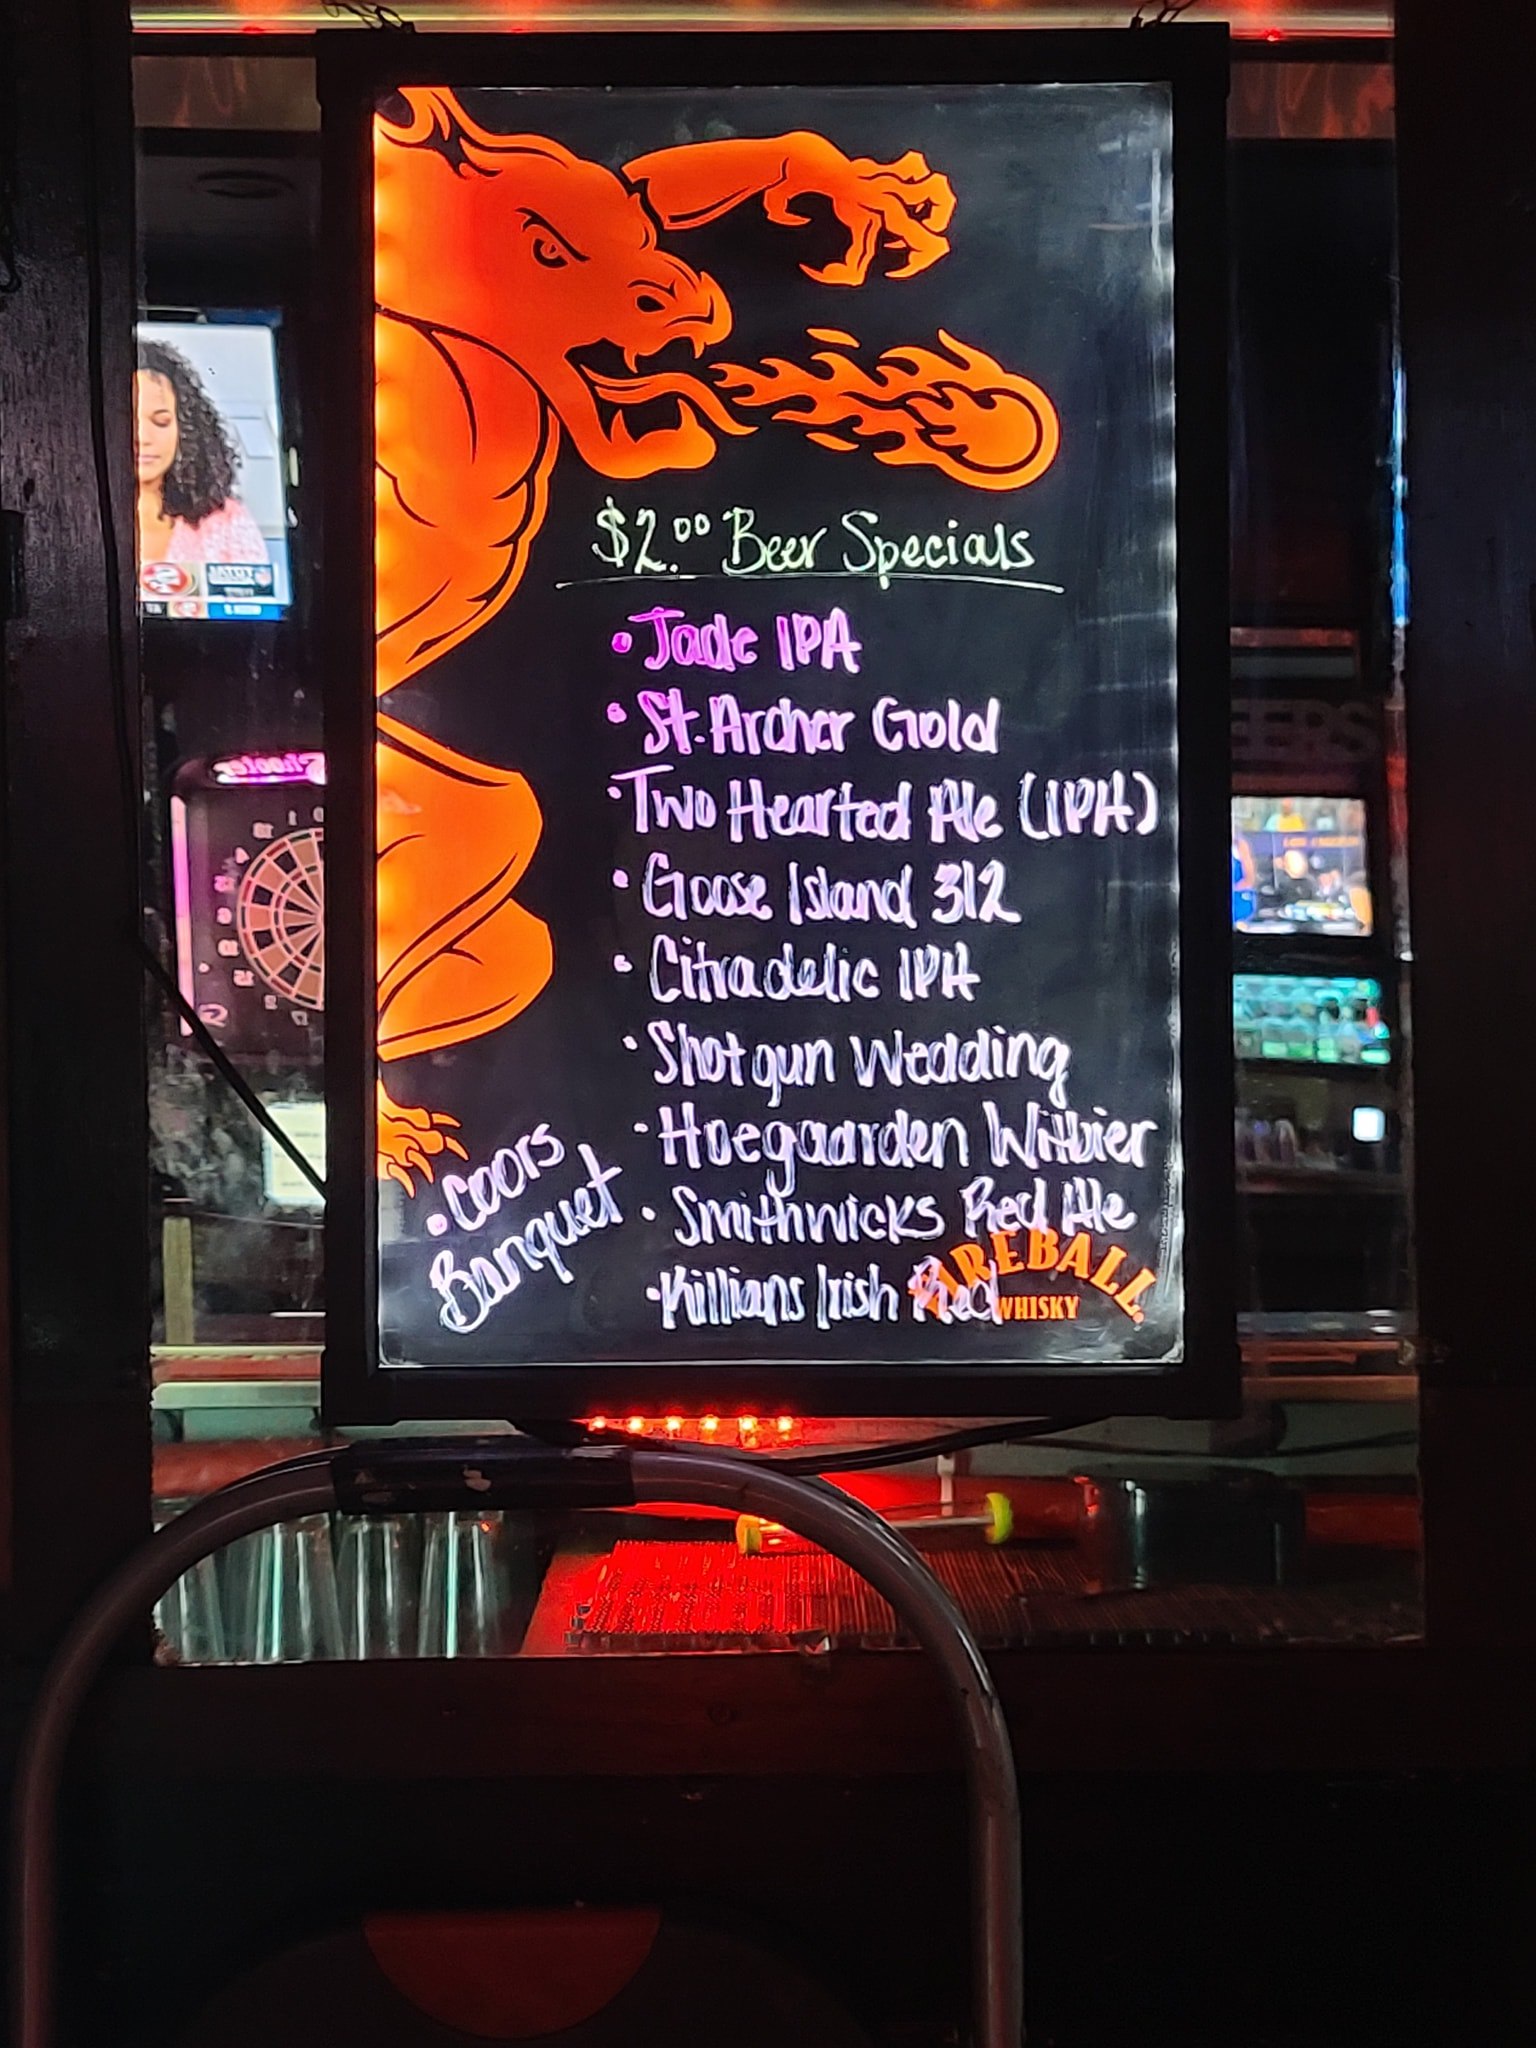 $2.00 Beer Specials
• Jade IPA
• St. Archer Gold
• Two Hearted Ale (IPA)
• Goose Island 312
• Citradelic IPA
• Shotgun Wedding
• Hoegaarden Witbier
• Smithwicks Red Ale
• Killians Irish Red
• Coors
Banquet
FIREBALL
WHISKY